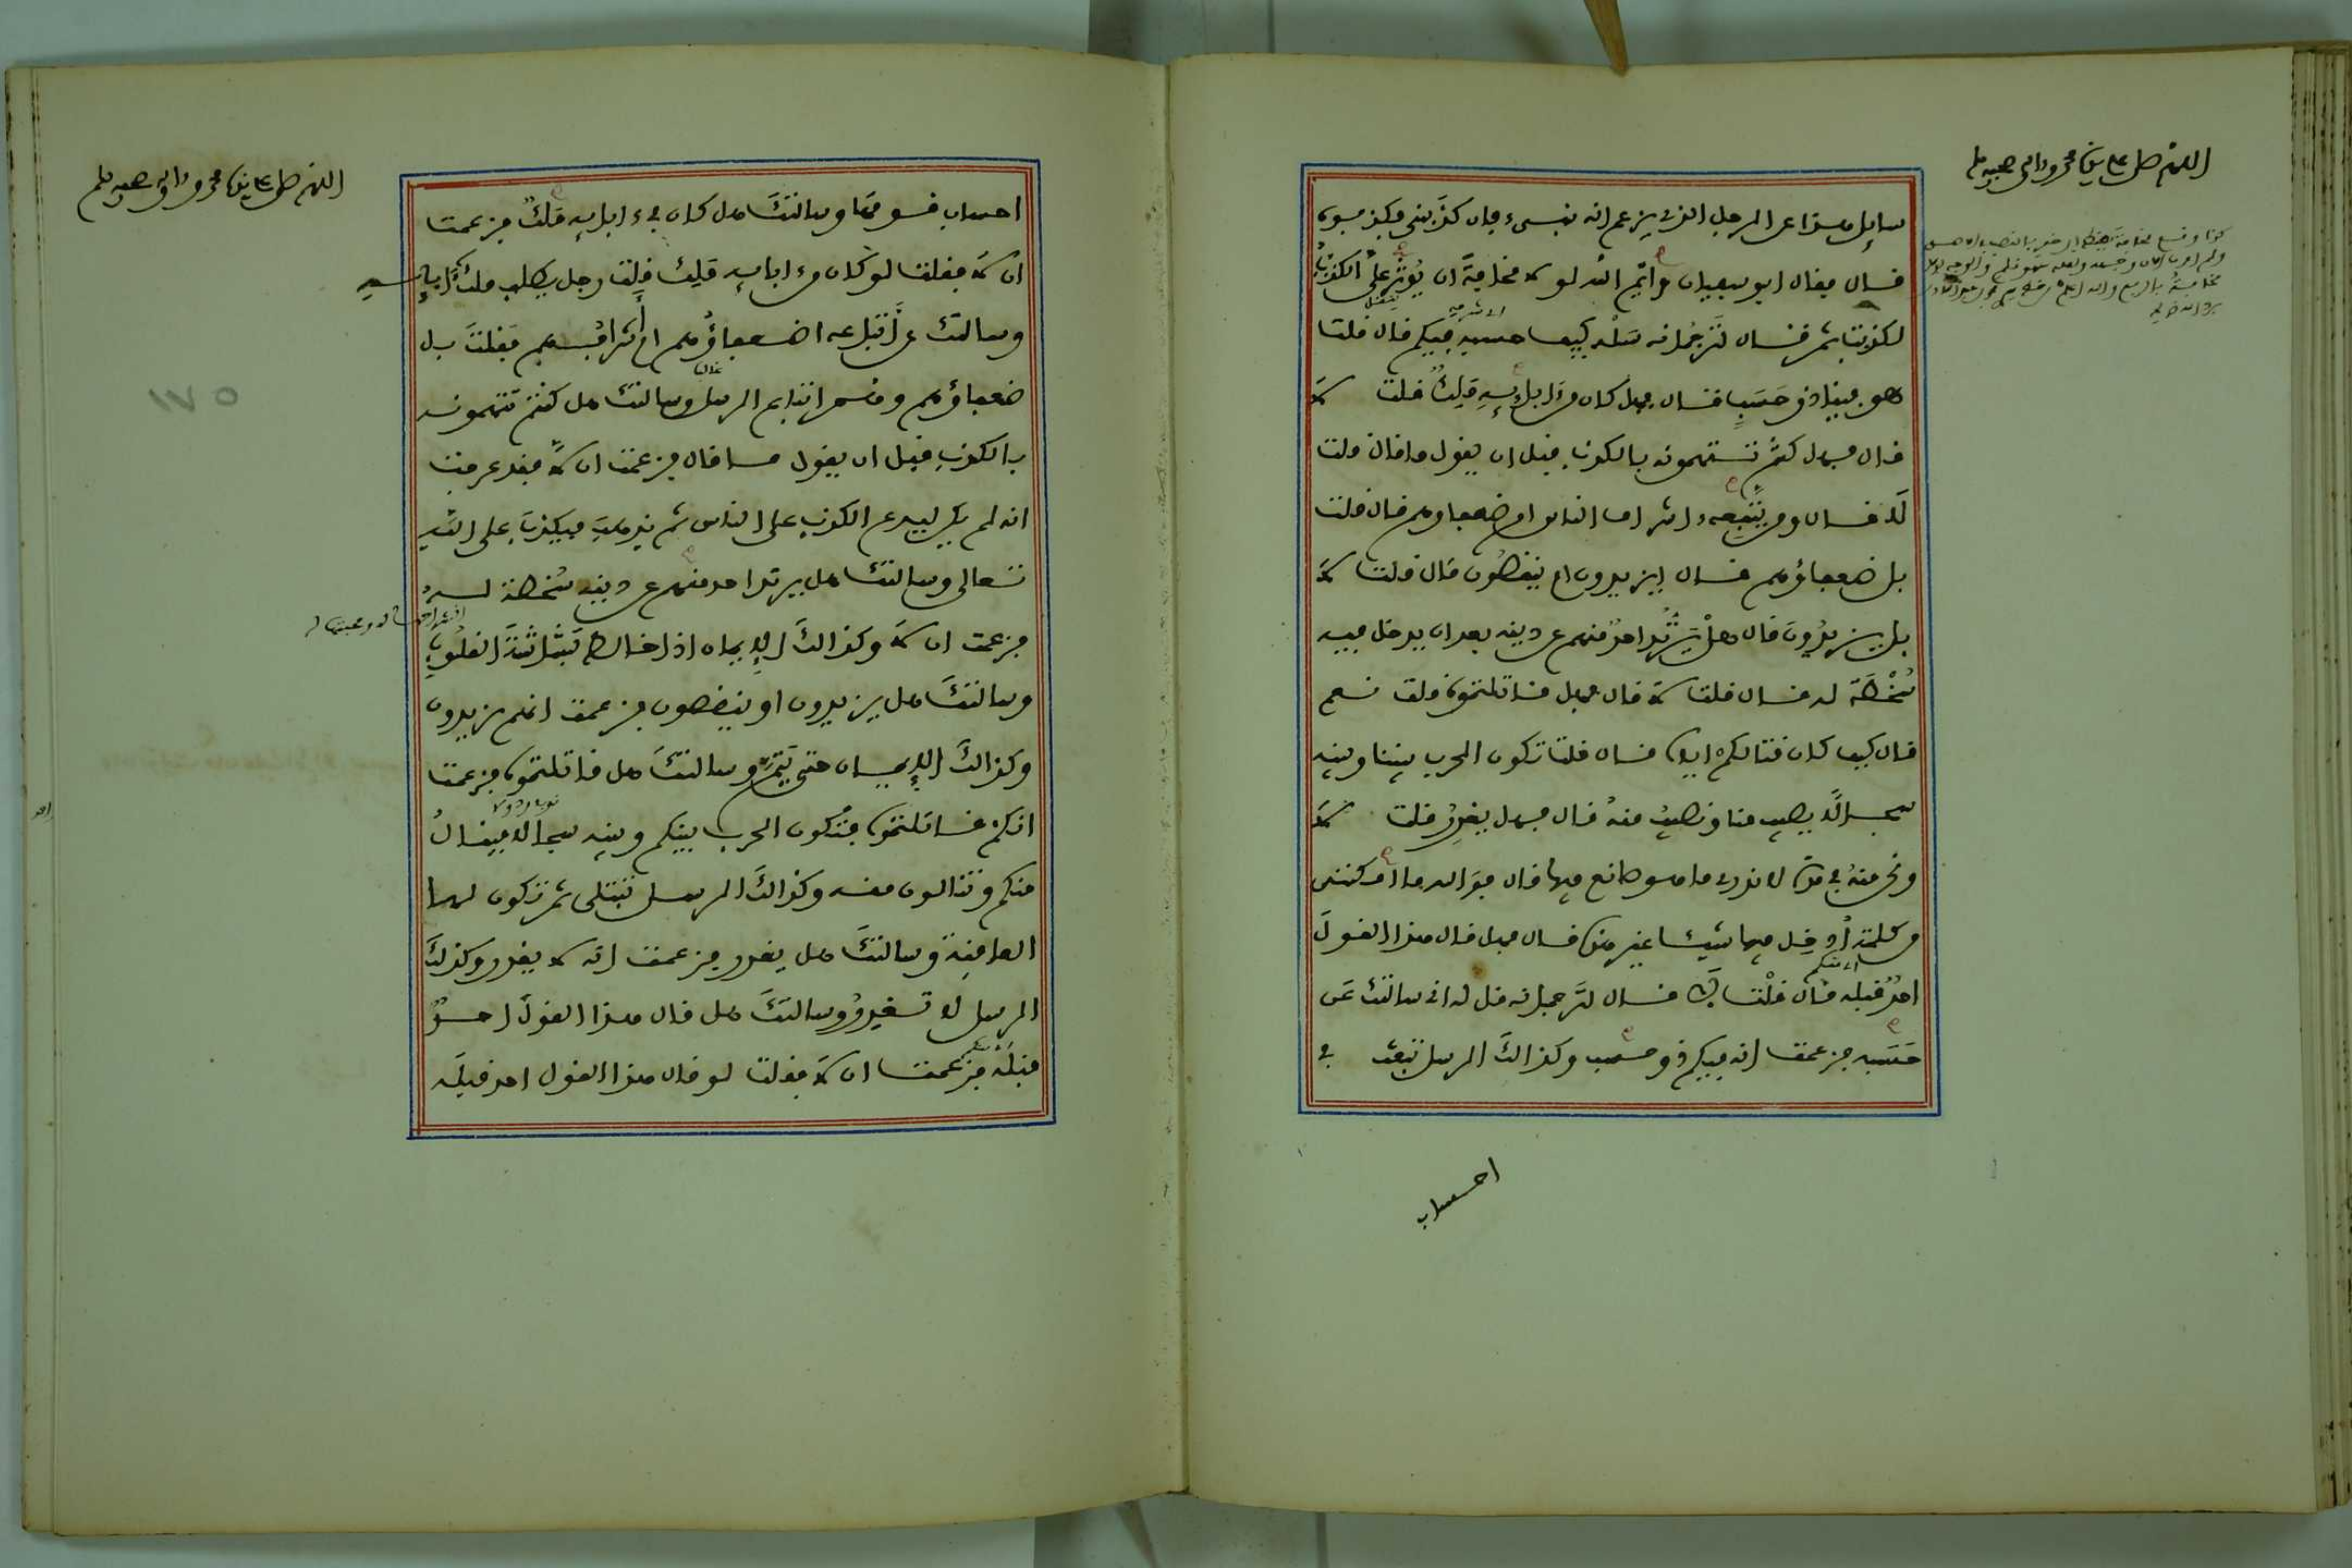 اللهم صل على سيدنا محمد وآله وصحبه وسلم
سايل هذا عن الرجل الذي يزعم انه نبيء فإن كذبني فكذبوه
قال فقال ابو سفيان وايم الله لولا مخافة ان يوثر على الكذب
لكذبت ثم قال لترجمانه سله كيف حسبه فيكم قال قلت
هو فينا ذو حسب قال فهل كان من ءابايه ملك قلت لا
قال فهل كنتم تتهمونه بالكذب قبل ان يقول ما قال قلت
لا قال ومن يتبعه أشراف الناس ام ضعفاؤهم قال قلت
بل ضعفاؤهم قال ايزيدون ام ينقصون قال قلت لا
بل يزيدون قال هل يرتد احد منهم عن دينه بعد ان يدخل فيه
سخطة له قال قلت لا قال فهل قاتلتموه قلت نعم
قال كيف كان قتالكم اياه قال قلت تكون الحرب بيننا وبينه
سجالا يصيب منا ونصيب منه قال فهل يغدر قلت لا
ونحن منه في مدة لا ندري ما هو صانع فيها قال فوالله ما امكنني
من كلمة أدخل فيها شيئا غير هذه قال فهل قال هذا القول
احد قبله قال قلت لا قال لترجمانه قل له اني سالتك عن
حسبه فزعمت انه فيكم ذو حسب وكذالك الرسل تبعث في
احساب
اللهم صل على سيدنا محمد وآله وصحبه وسلم
احساب قومها وسالتك هل كان في ءابايه ملك فزعمت
ان لا فقلت لو كان من ءابايه ملك قلت رجل يطلب ملك ءابايه
وسالتك عن أتباعه اضعفاؤهم ام أشرافهم فقلت بل
ضعفاؤهم وهم اتباع الرسل وسالتك هل كنتم تتهمونه
بالكذب قبل ان يقول ما قال فزعمت ان لا فقد عرفت
انه لم يكن ليدع الكذب على الناس ثم يذهب فيكذب على الله
تعالى وسالتك هل يرتد احد منهم عن دينه سخطة له
فزعمت ان لا وكذالك الإيمان اذا خالط بشاشة القلوب
وسالتك هل يزيدون او ينقصون فزعمت انهم يزيدون
وكذالك الإيمان حتى يتم وسالتك هل قاتلتموه فزعمت
انكم قاتلتموه فتكون الحرب بينكم وبينه سجالا ينال
منكم وتنالون منه وكذالك الرسل تبتلى ثم تكون لها
العاقبة وسالتك هل يغدر فزعمت انه لا يغدر وكذلك
الرسل لا تغدر وسالتك هل قال هذا القول احد
قبله فزعمت ان لا فقلت لو قال هذا القول احد قبله